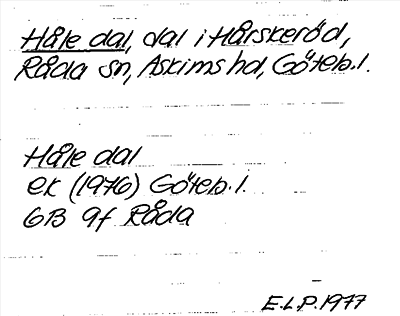 Håle dal, dal i Hårskeröd,
Råda sn, Askims hd, Göteb. l.
Håle dal
ek (1976) Göteb. l.
6B 9f Råda
E.L.P. 1977